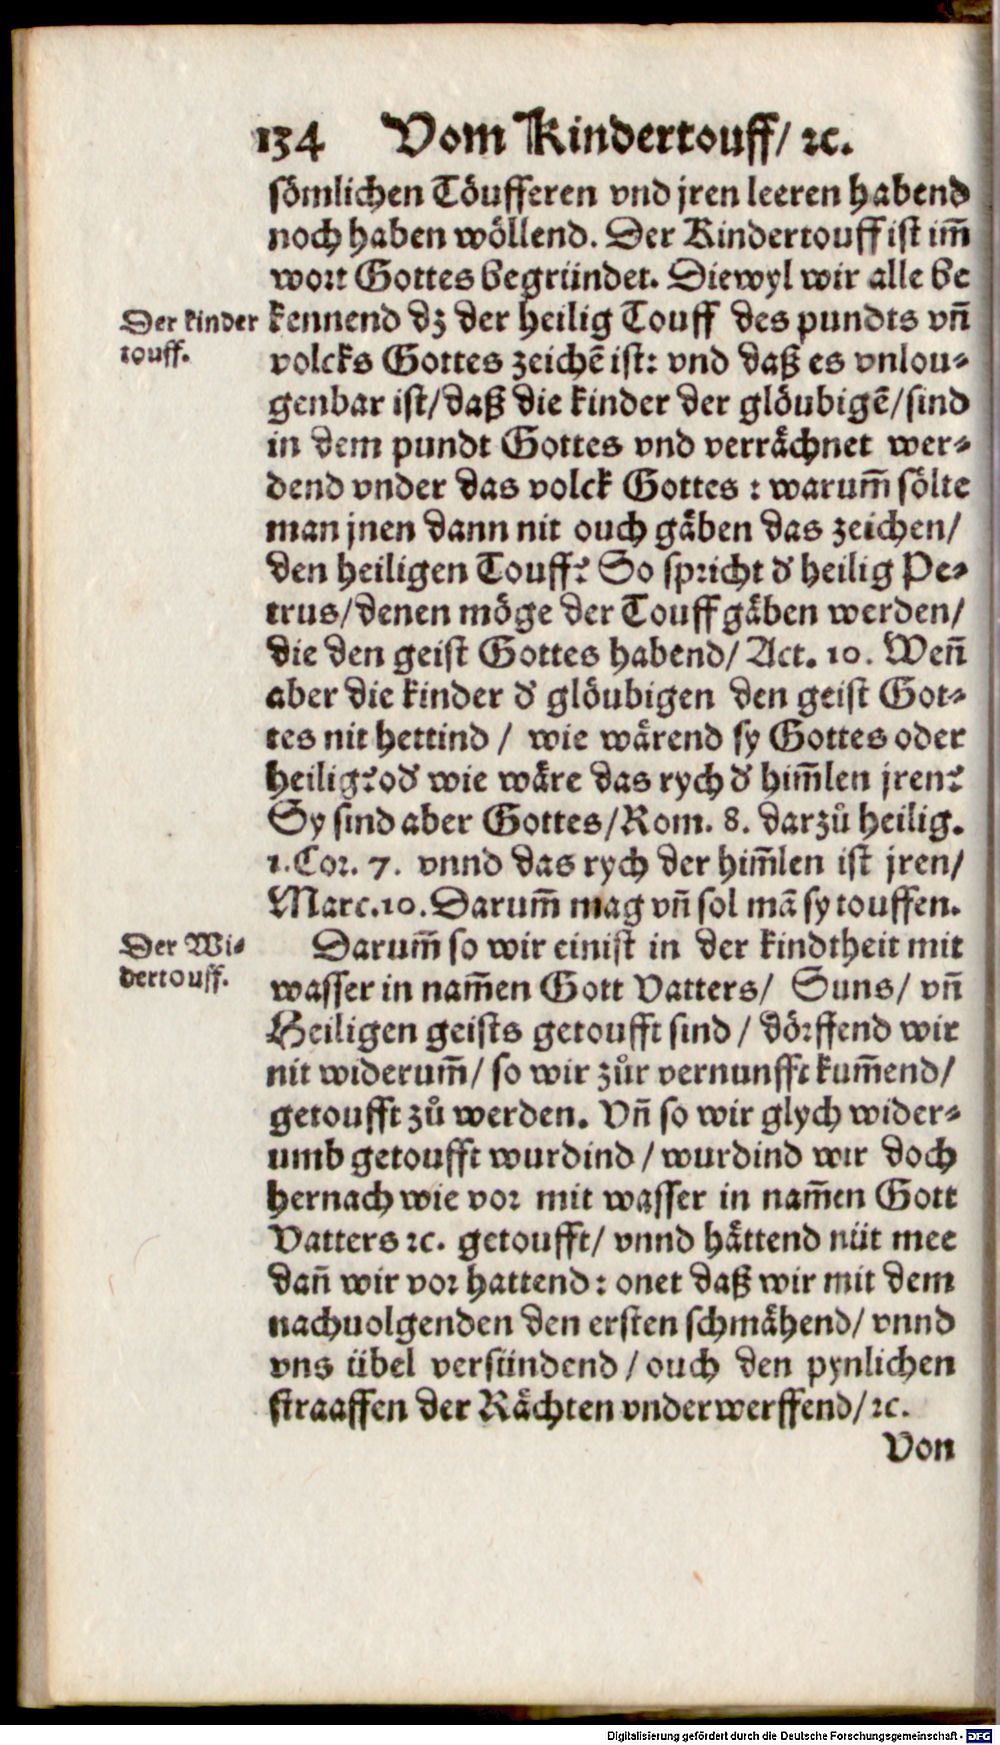 134 Vom Kindertouff/ ꝛc.
sömlichen Töufferen vnd jren leeren habend
noch haben wöllend. Der Kindertouff ist im̃
wort Gottes begründet. Diewyl wir alle be
Der kinder
touff.
kennend dz der heilig Touff des pundts vñ
volcks Gottes zeichẽ ist: vnd daß es vnlou-
genbar ist/ daß die kinder der glöubigẽ/ sind
in dem pundt Gottes vnd verrächnet wer-
dend vnder das volck Gottes : warum̃ sölte
man jnen dann nit ouch gäben das zeichen/
den heiligen Touff? So spricht d' heilig Pe-
trus/ denen möge der Touff gäben werden/
die den geist Gottes habend/ Act. 10. Weñ
aber die kinder d' glöubigen den geist Got-
tes nit hettind / wie wärend sy Gottes oder
heilig? od' wie wäre das rych d' him̃len jren?
Sy sind aber Gottes/ Rom. 8. darzů heilig.
1. Cor. 7. vnnd das rych der him̃len ist jren/
Marc. 10. Darum̃ mag vñ sol mã sy touffen.
Der Wi-
dertouff.
Darum̃ so wir einist in der kindtheit mit
wasser in nam̃en Gott Vatters/ Suns/ vñ
Heiligen geists getoufft sind / dörffend wir
nit widerum̃/ so wir zůr vernunfft kum̃end/
getoufft zů werden. Vñ so wir glych wider-
umb getoufft wurdind / wurdind wir doch
hernach wie vor mit wasser in nam̃en Gott
Vatters ꝛc. getoufft/ vnnd hättend nüt mee
dañ wir vor hattend : onet daß wir mit dem
nachuolgenden den ersten schmähend/ vnnd
vns übel versündend / ouch den pynlichen
straaffen der Rächten vnderwerffend/ ꝛc.
Von
Digitalisierung gefördert durch die Deutsche Forschungsgemeinschaft - DFG